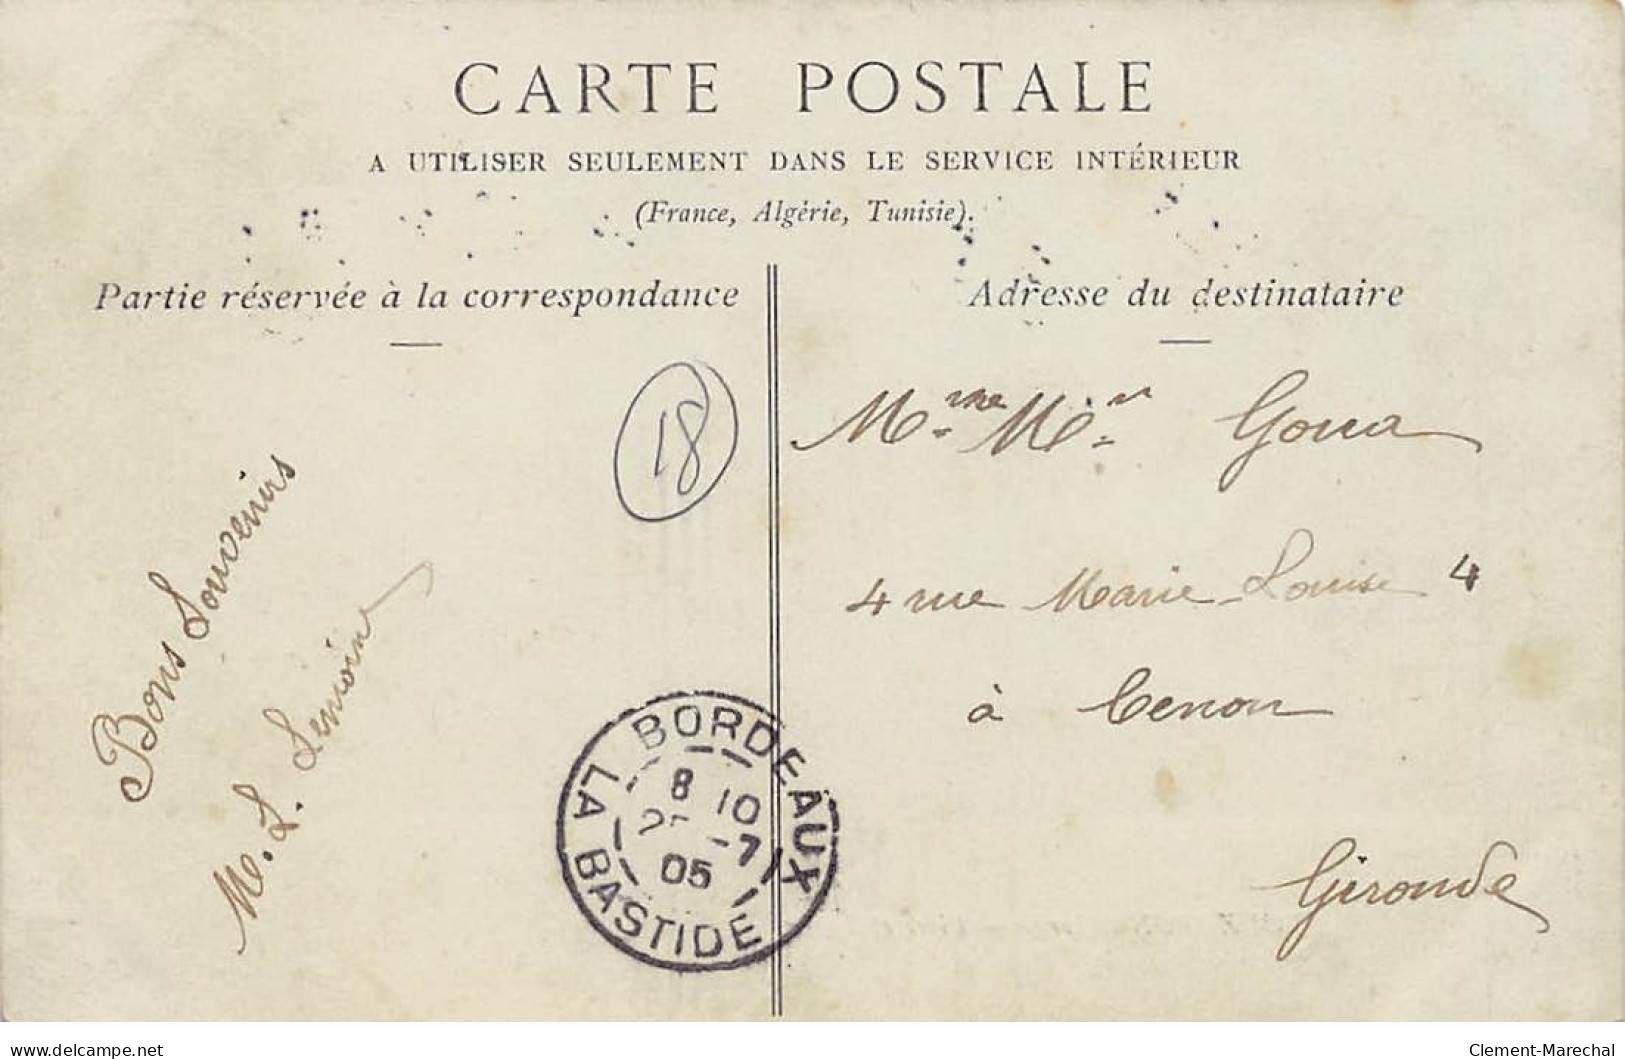 CARTE POSTALE
A UTILISER SEULEMENT DANS LE SERVICE INTÉRIEUR
(France, Algérie, Tunisie).
Partie réservée à la correspondance
Adresse du destinataire
18
Bons Souvenirs
M. L. Lenoir
Mme Mr Goua
4 rue Marie-Louise 4
à Cenon
Gironde
BORDEAUX
LA BASTIDE
8 10
-7
05
delcampe.net
Clement-Marechal